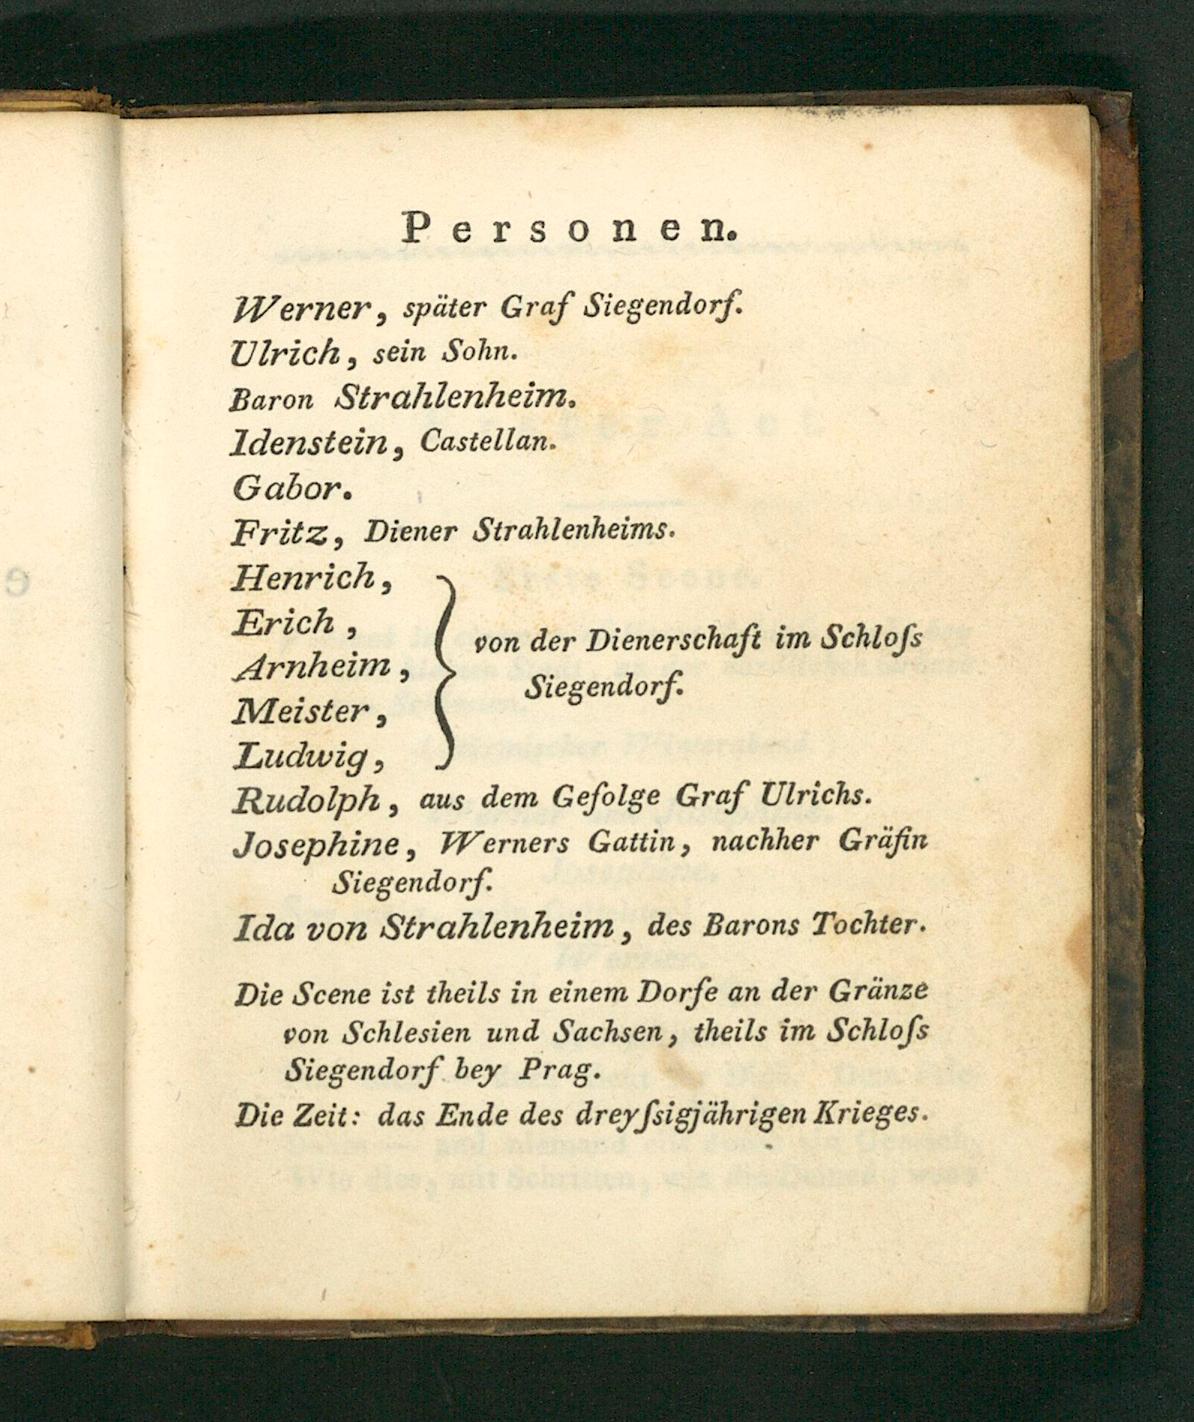 Personen.
Werner, später Graf Siegendorf.
Ulrich, sein Sohn.
Baron Strahlenheim.
Idenstein, Castellan.
Gabor.
Fritz, Diener Strahlenheims.
Henrich,
Erich,
Arnheim,
Meister,
Ludwig,
von der Dienerschaft im Schloſs
Siegendorf.
Rudolph, aus dem Gefolge Graf Ulrichs.
Josephine, Werners Gattin, nachher Gräfin
Siegendorf.
Ida von Strahlenheim, des Barons Tochter.
Die Scene ist theils in einem Dorfe an der Gränze
von Schlesien und Sachsen, theils im Schloſs
Siegendorf bey Prag.
Die Zeit: das Ende des dreyſsigjährigen Krieges.